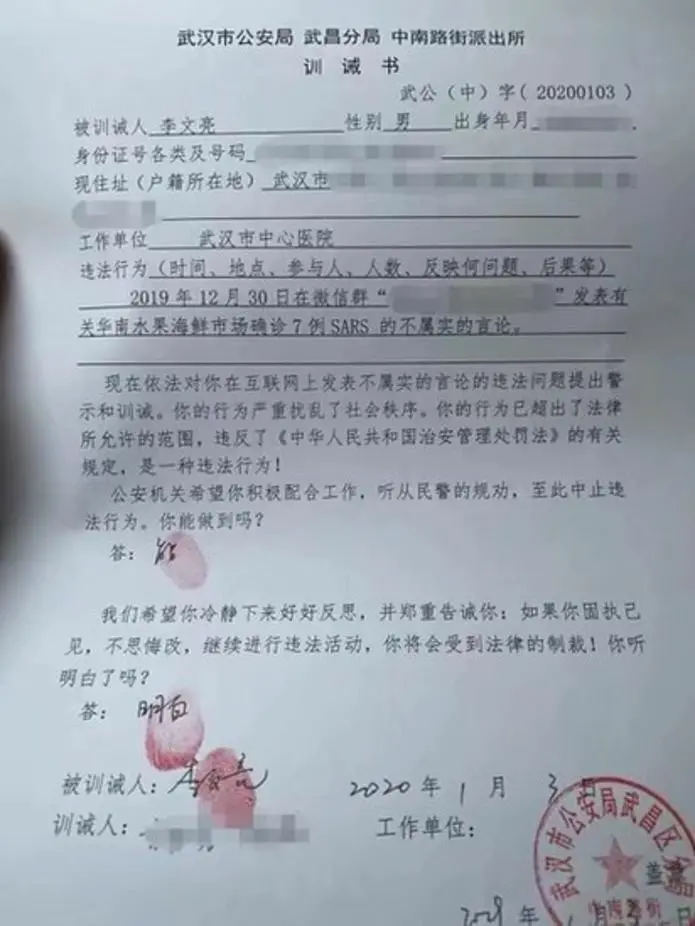 武汉市公安局 武昌分局 中南路街派出所
训 诫 书
武公（中）字( 20200103 )
被训诫人 李文亮 性别 男 出身年月
身份证号各类及号码
现住址（户籍所在地） 武汉市
工作单位 武汉市中心医院
违法行为（时间、地点、参与人、人数、反映何问题、后果等）
2019年12月30日在微信群“ ”发表有
关华南水果海鲜市场确诊7例SARS 的不属实的言论。
现在依法对你在互联网上发表不属实的言论的违法问题提出警
示和训诫。你的行为严重扰乱了社会秩序。你的行为已超出了法律
所允许的范围，违反了《中华人民共和国治安管理处罚法》的有关
规定，是一种违法行为！
公安机关希望你积极配合工作，听从民警的规劝，至此中止违
法行为。你能做到吗？
答： 能
我们希望你冷静下来好好反思，并郑重告诫你：如果你固执己
见，不思悔改，继续进行违法活动，你将会受到法律的制裁！你听
明白了吗？
答： 明白
被训诫人： 李文亮 2020 年 1 月 3 日
训诫人： 工作单位：
武汉市公安局武昌区分局
中南路街
盖章
1月3日